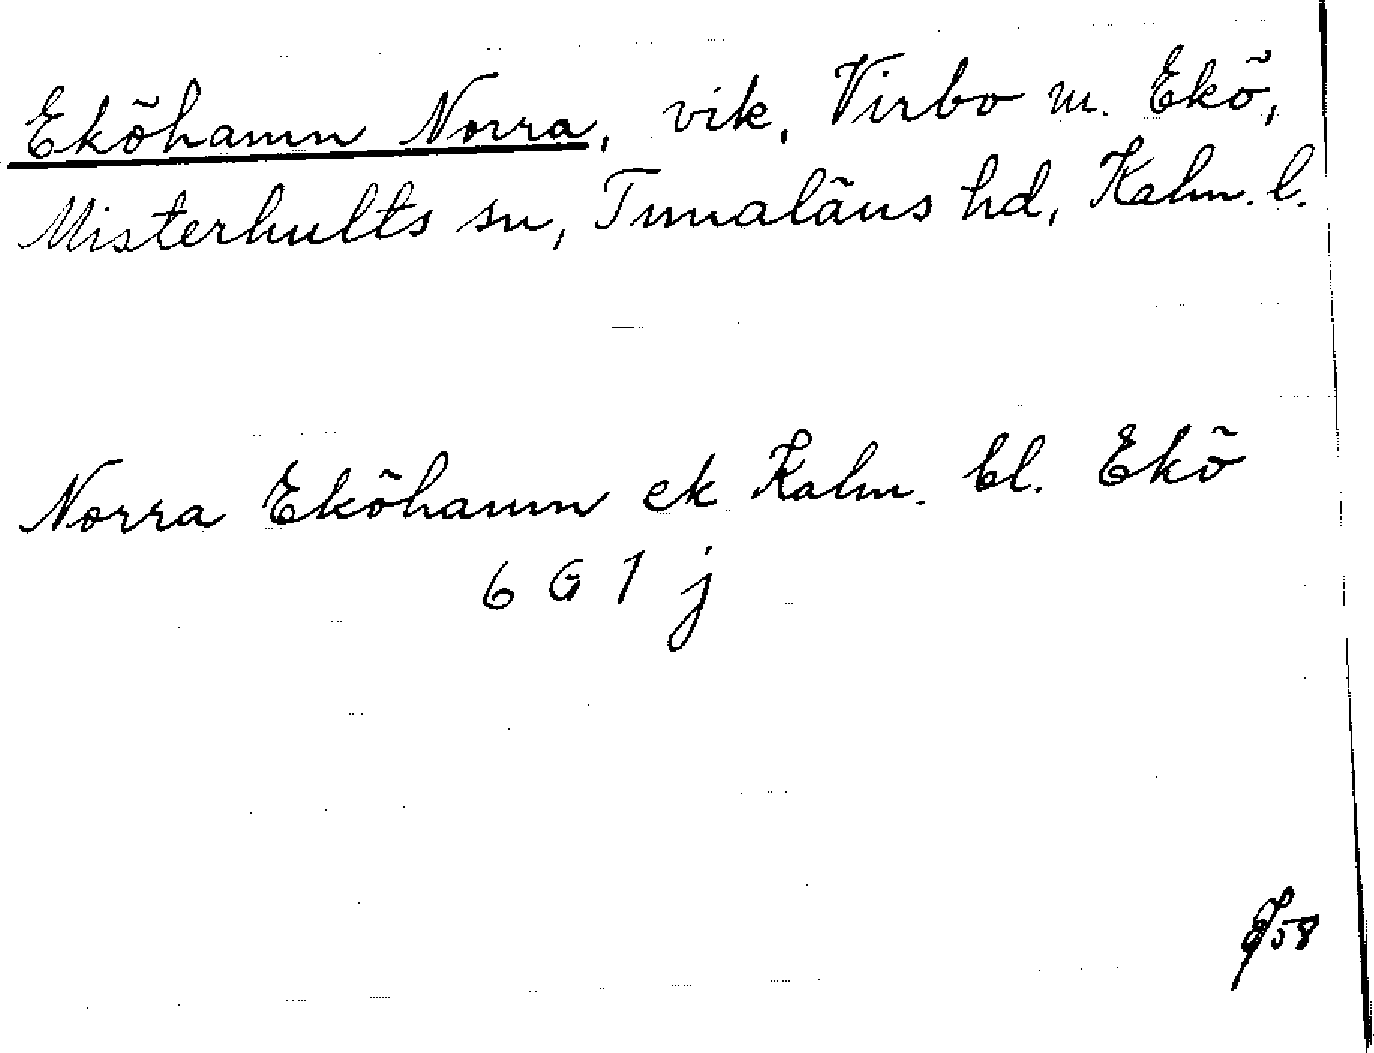 Eköhamn Norra, vik, Virbo m. Ekö,
Misterhults sn, Tunaläns hd, Kalm. l.
Norra Eköhamn ek Kalm. bl. Ekö
6 G 1 j